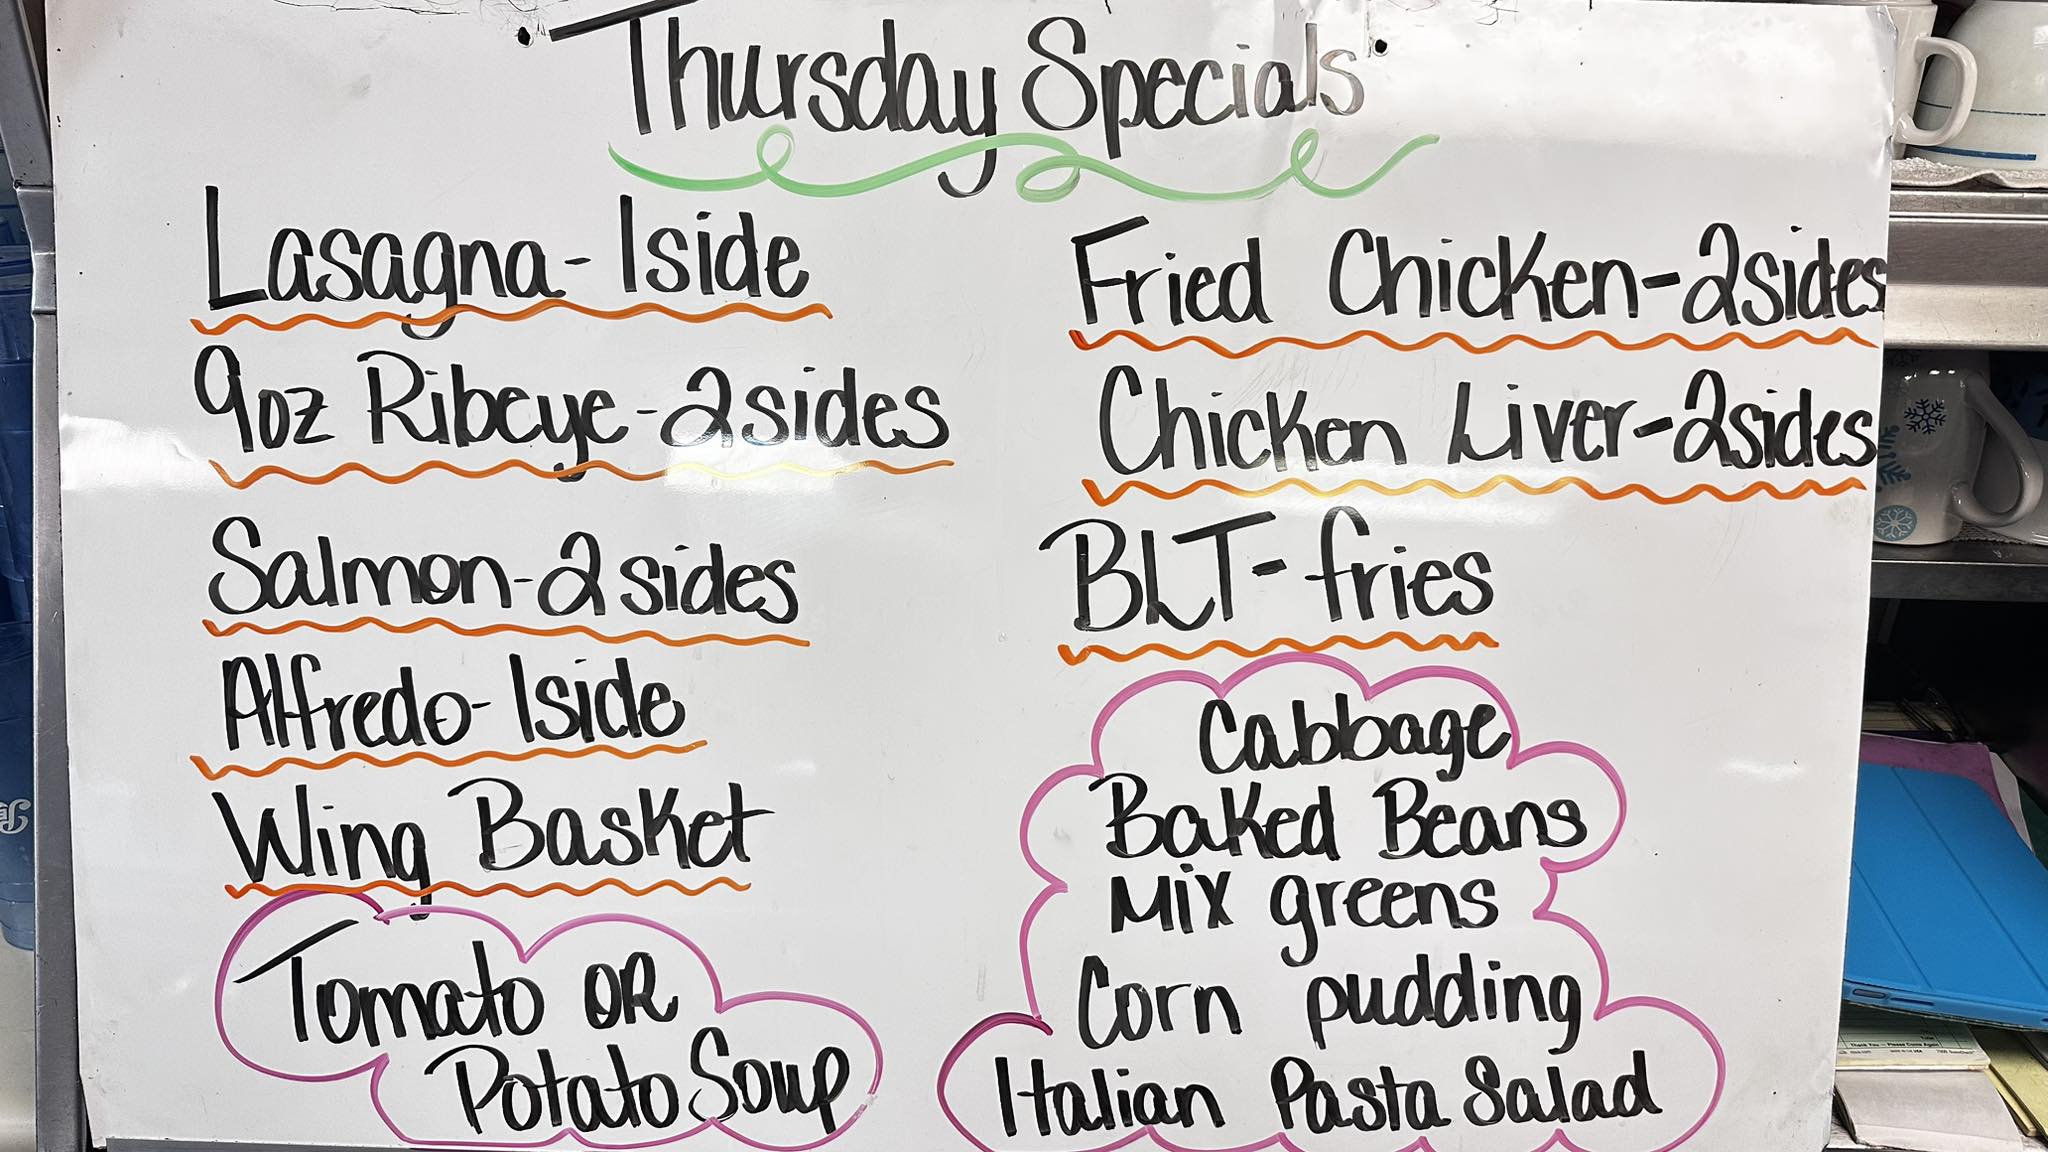 Thursday Specials
Lasagna - 1side
9oz Ribeye - 2sides
Salmon - 2 sides
Alfredo - 1side
Wing Basket
Tomato OR
Potato Soup
Fried Chicken - 2sides
Chicken Liver - 2sides
BLT - fries
Cabbage
Baked Beans
Mix greens
Corn pudding
Italian Pasta Salad
Thank You — Please Come Again